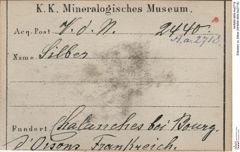 K. K. Mineralogisches Museum.
Acq. Post V. d. N. 2440.
A.a. 2718
Name Silber
Fundort: Chalanches bei Bourg
d'Oisons, Frankreich.